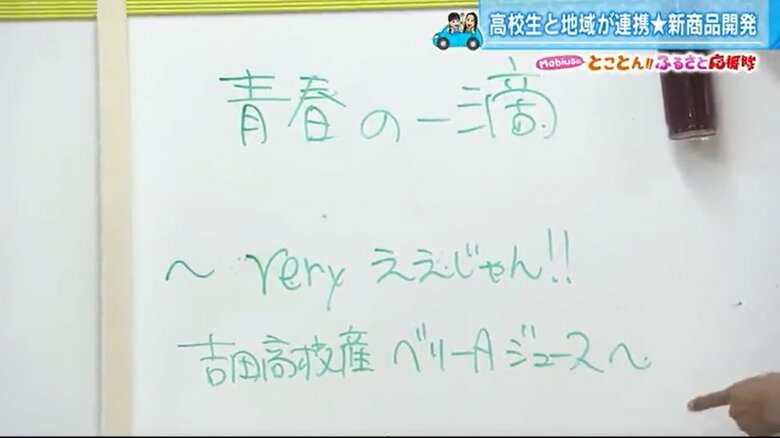 高校生と地域が連携★新商品開発
Mobius∞ とことん!!ふるさと応援隊
青春の一滴
～ very ええじゃん!!
吉田高校産 ベリーAジュース～